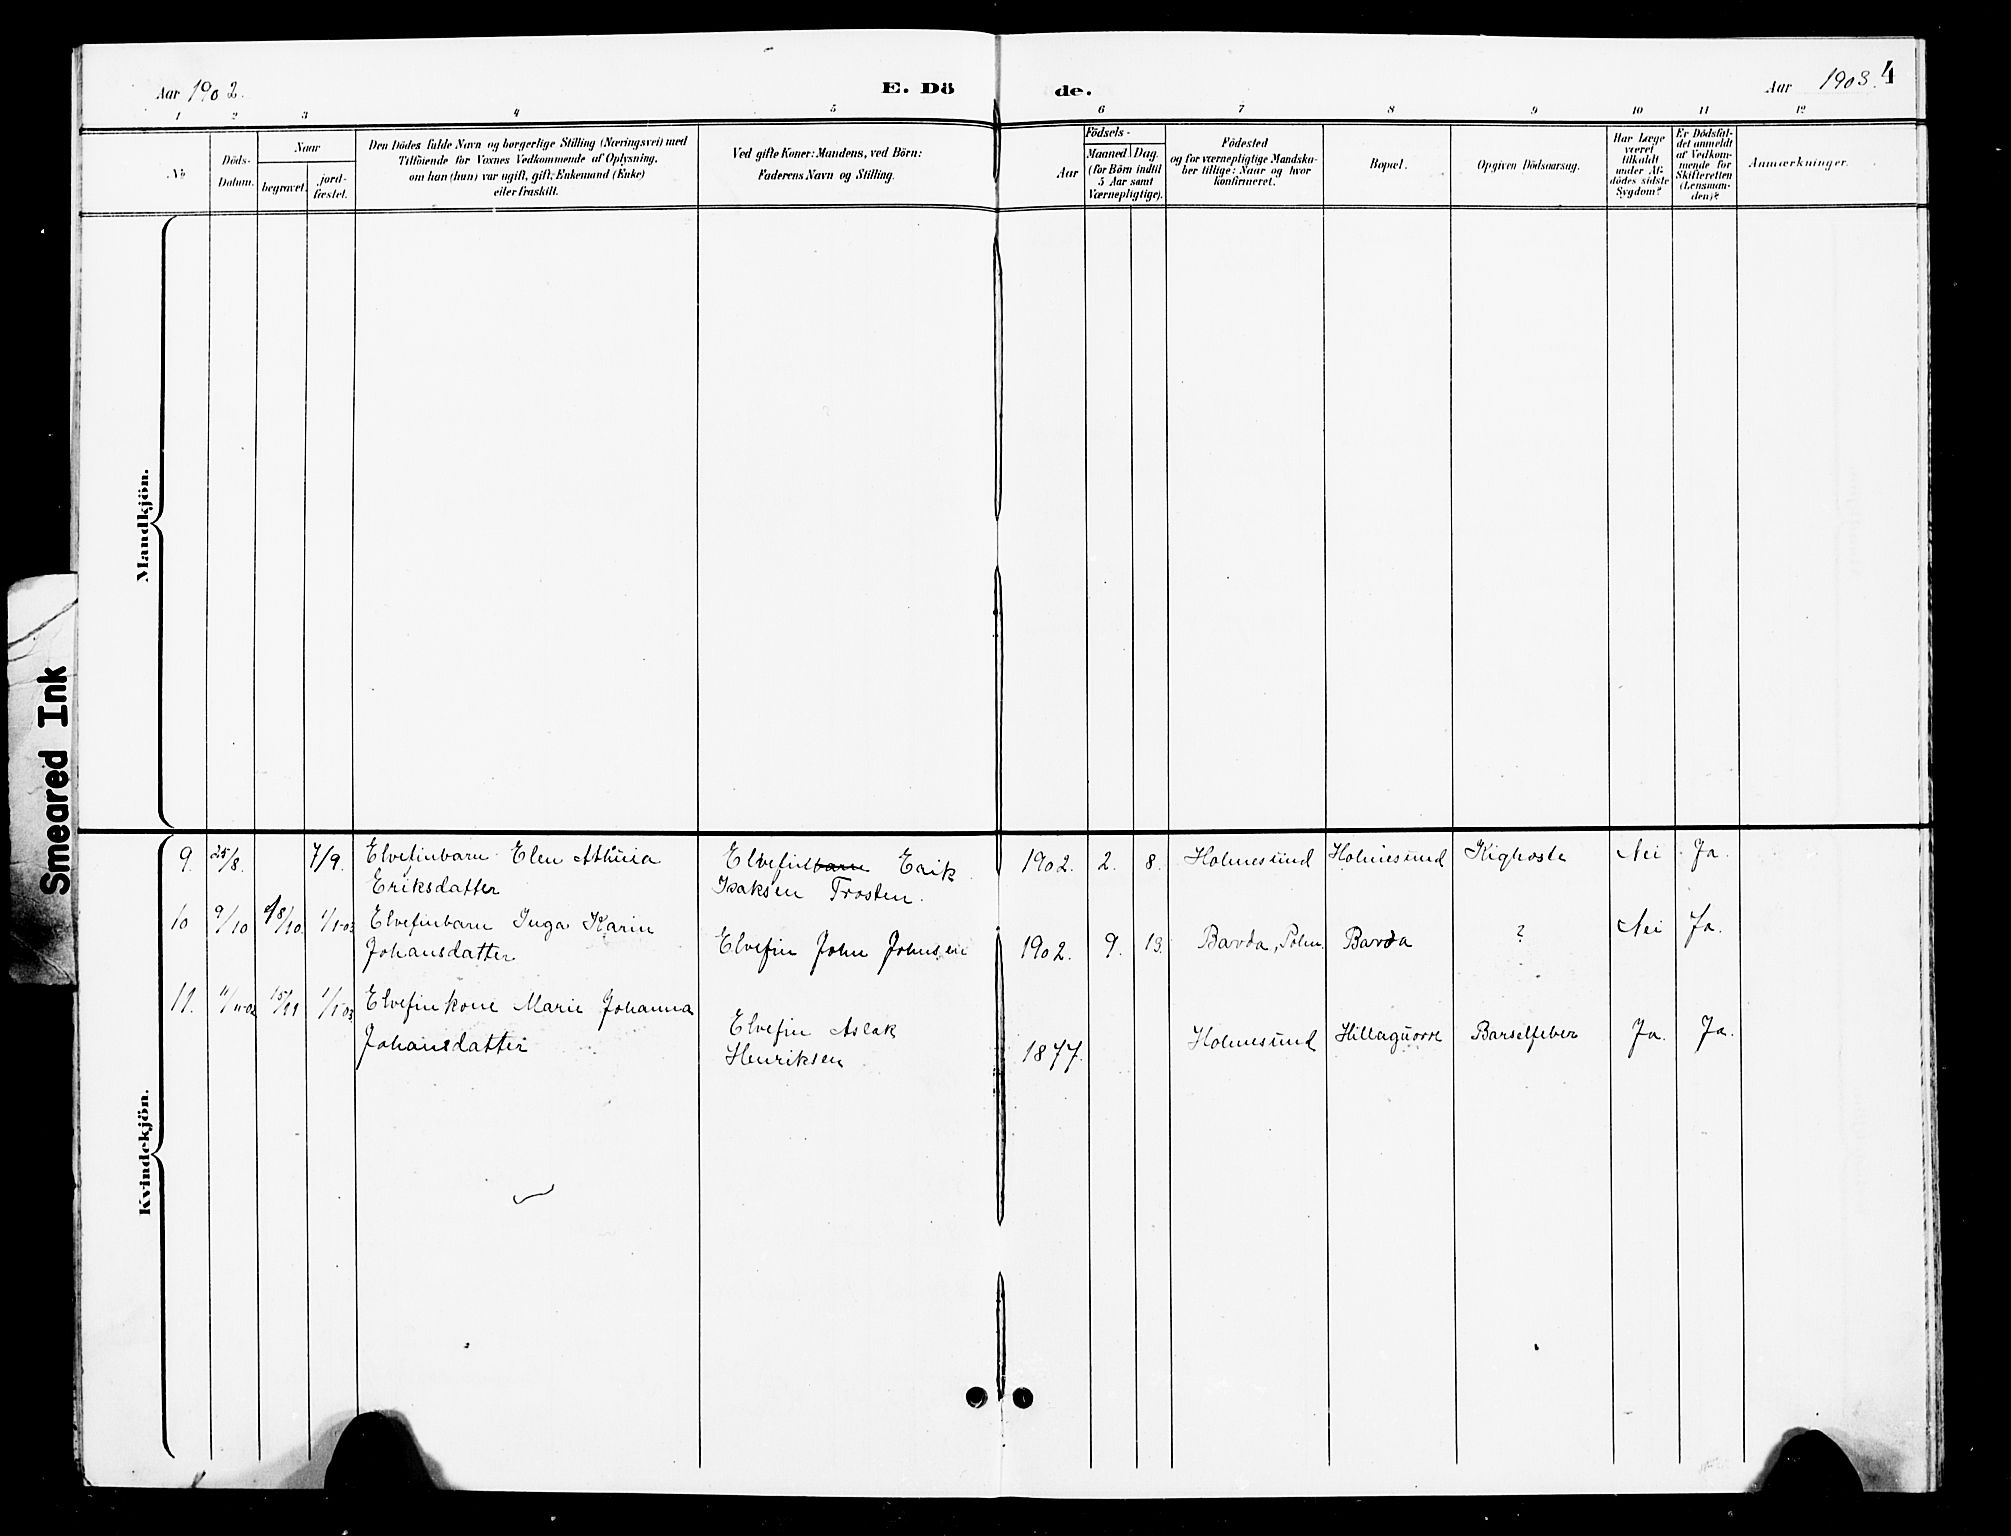 Aar 1902.
E. Dö
de.
Aar 1903.
4
1 2 3 4 5 6 7 8 9 10 11 12
No
Döds-
Datum.
Naar
begravet.
jord-
fæstet.
Den Dödes fulde Navn og borgerlige Stilling (Næringsvei) med
Tilföiende for Voxnes Vedkommende af Oplysning,
om han (hun) var ugift, gift, Enkemand (Enke)
eller fraskilt.
Ved gifte Koner: Mandens, ved Börn:
Faderens Navn og Stilling.
Födsels-
Aar
Maaned
Dag.
(for Börn indtil
5 Aar samt
Værnepligtige).
Födested
og for værnepligtige Mandska-
ber tillige: Naar og hvor
konfirmeret.
Bopæl.
Opgiven Dödsaarsag.
Har Læge
været
tilkaldt
under Af-
dödes sidste
Sygdom?
Er Dödsfal-
det anmeldt
af Vedkom-
mende for
Skifteretten
(Lensman-
den)?
Anmærkninger.
Mandkjön.
Smeared Ink
Kvindekjön.
9. 25/8. 7/9. Elvefinbarn Elen
Eriksdatter
Elvefin barn Erik
Isaksen Trosten.
1902. 2. 8. Holmesund Holmesund Kighoste Nei Ja.
10 9/10 18/10. 1/1-03 Elvefinbarn Inga Karin
Johansdatter
Elvefin John Johnsen
1902. 9. 13. Bavda, Polm. Bavda ? Nei Ja.
11. 11/11-02 15/11 1/1-03 Elvefinkone Marie Johanna
Johansdatter
Elvefin Aslak
Henriksen
1877. Holmesund Barselfeber Ja. Ja.